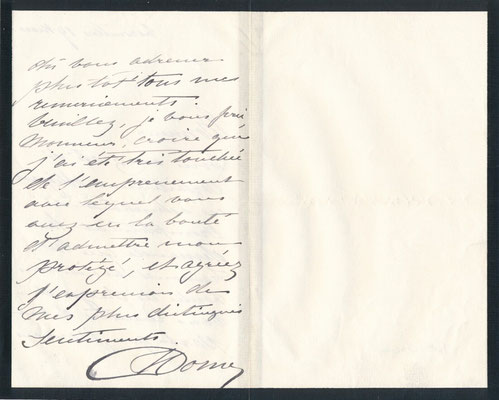 dû vous adresser
plus tôt tous mes
remerciements.
Veuillez, je vous prie
Monsieur, croire que
j'ai été très touchée
de l'empressement
avec lequel vous
avez eu la bonté
d'admettre mon
protégé, et agréez
l'expression de
mes plus distingués
sentiments.